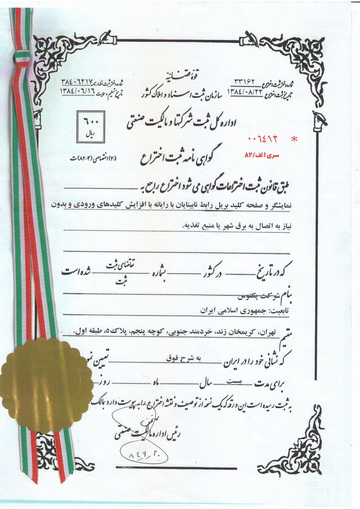 قوه قضائیه
سازمان ثبت اسناد و املاک کشور
شماره ثبت اختراع ۳۳۱۶۲
تاریخ ثبت اختراع ۱۳۸۴/۰۸/۲۲
شماره ثبت اظهارنامه ۳۸۴۰۶۲۱۷
۱۳۸۴/۰۶/۱۶
اداره کل ثبت شرکتها و مالکیت صنعتی
۶۰۰
ریال
* ۰۰۶۴۱۲
سری الف/۸۲
گواهی نامه ثبت اختراع
طبق قانون ثبت اختراعات گواهی می شود اختراع راجع به
نمایشگر و صفحه کلید بریل رابط نابینایان با رایانه با افزایش کلیدهای ورودی و بدون
نیاز به اتصال به برق شهر یا منبع تغذیه.
که در تاریخ در کشور بشماره تقاضای ثبت شده است
ثبت
بنام شرکت پکتوس
تابعیت: جمهوری اسلامی ایران
مقیم تهران، کریمخان زند، خردمند جنوبی، کوچه پنجم، پلاک۵، طبقه اول.
که نشانی خود را در ایران به شرح فوق تعیین
برای مدت بیست سال ماه روز
به ثبت رسیده است این ورقه که یک نسخه از توصیف و نقشه اختراع را به پیوست دارد
رئیس اداره مالکیت صنعتی